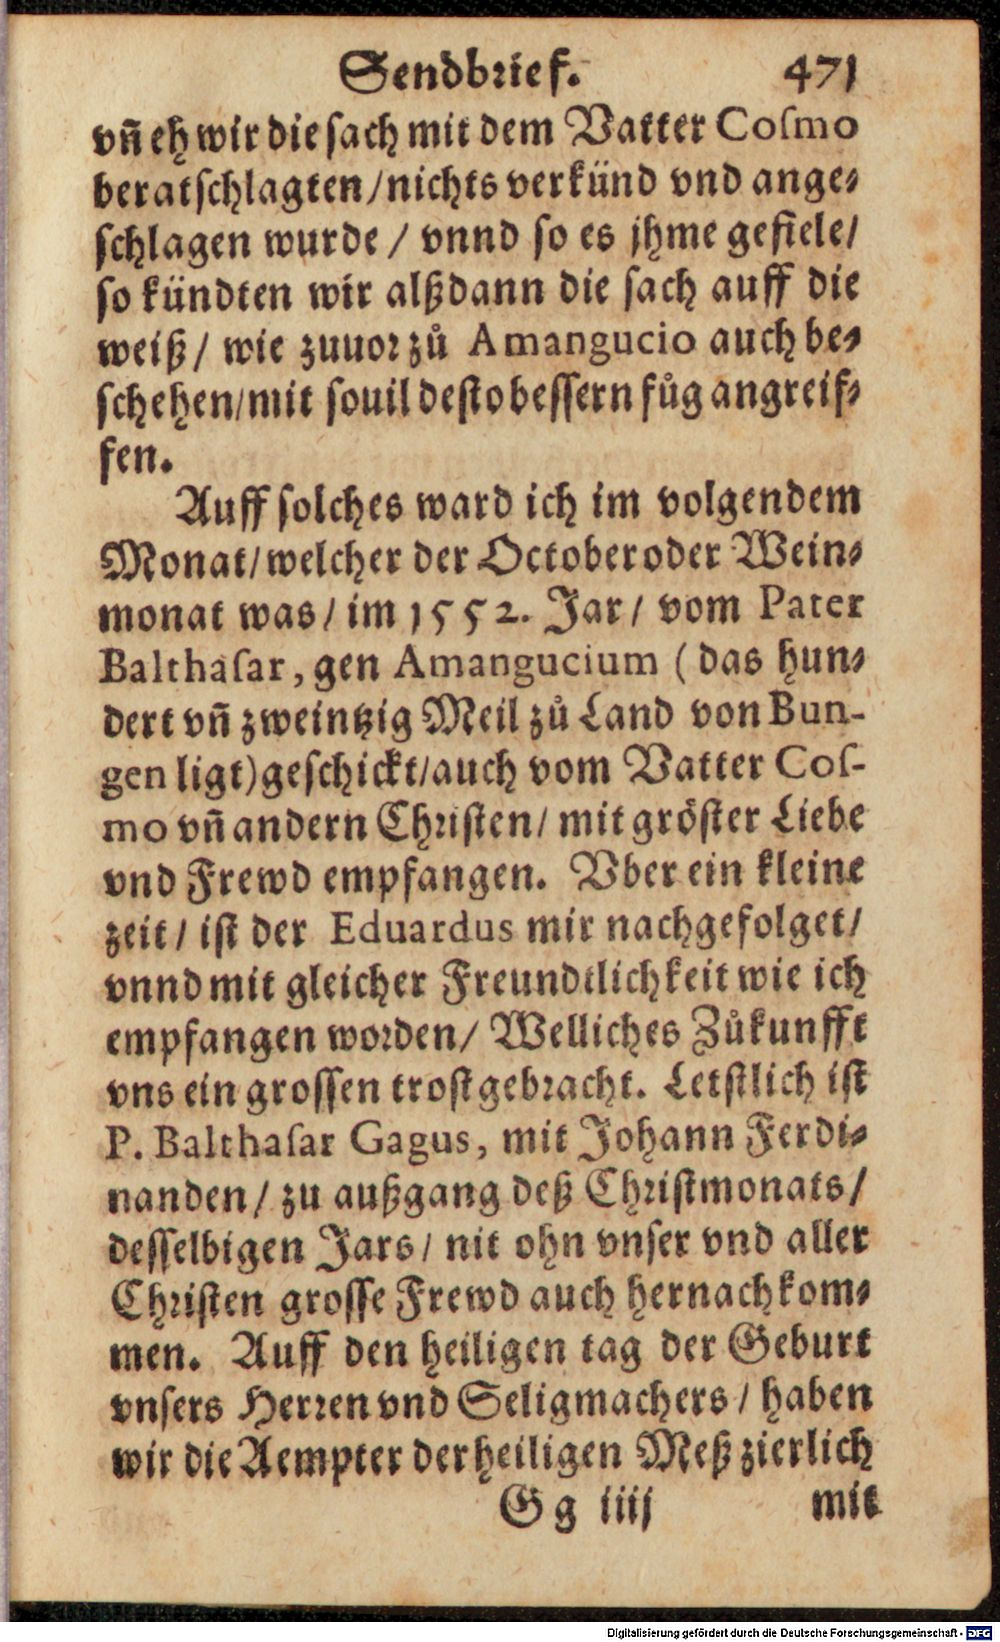 Sendbrief. 471
vñ eh wir die sach mit dem Vatter Cosmo
beratschlagten / nichts verkünd vnd ange⸗
schlagen wurde / vnnd so es jhme gefiele /
so kündten wir alßdann die sach auff die
weiß / wie zuuor zů Amangucio auch be⸗
schehen / mit souil desto bessern fůg angreif⸗
fen.
Auff solches ward ich im volgendem
Monat / welcher der October oder Wein⸗
monat was / im 1552. Jar / vom Pater
Balthasar, gen Amangucium (das hun⸗
dert vñ zweintzig Meil zů Land von Bun-
gen ligt) geschickt / auch vom Vatter Cos-
mo vñ andern Christen / mit gröster Liebe
vnd Frewd empfangen. Vber ein kleine
zeit / ist der Eduardus mir nachgefolget /
vnnd mit gleicher Freundtlichkeit wie ich
empfangen worden / Welliches Zůkunfft
vns ein grossen trost gebracht. Letstlich ist
P. Balthasar Gagus, mit Johann Ferdi⸗
nanden / zu außgang deß Christmonats /
desselbigen Jars / nit ohn vnser vnd aller
Christen grosse Frewd auch hernach kom⸗
men. Auff den heiligen tag der Geburt
vnsers Herren vnd Seligmachers / haben
wir die Aempter der heiligen Meß zierlich
Gg iiij mit
Digitalisierung gefördert durch die Deutsche Forschungsgemeinschaft - DFG